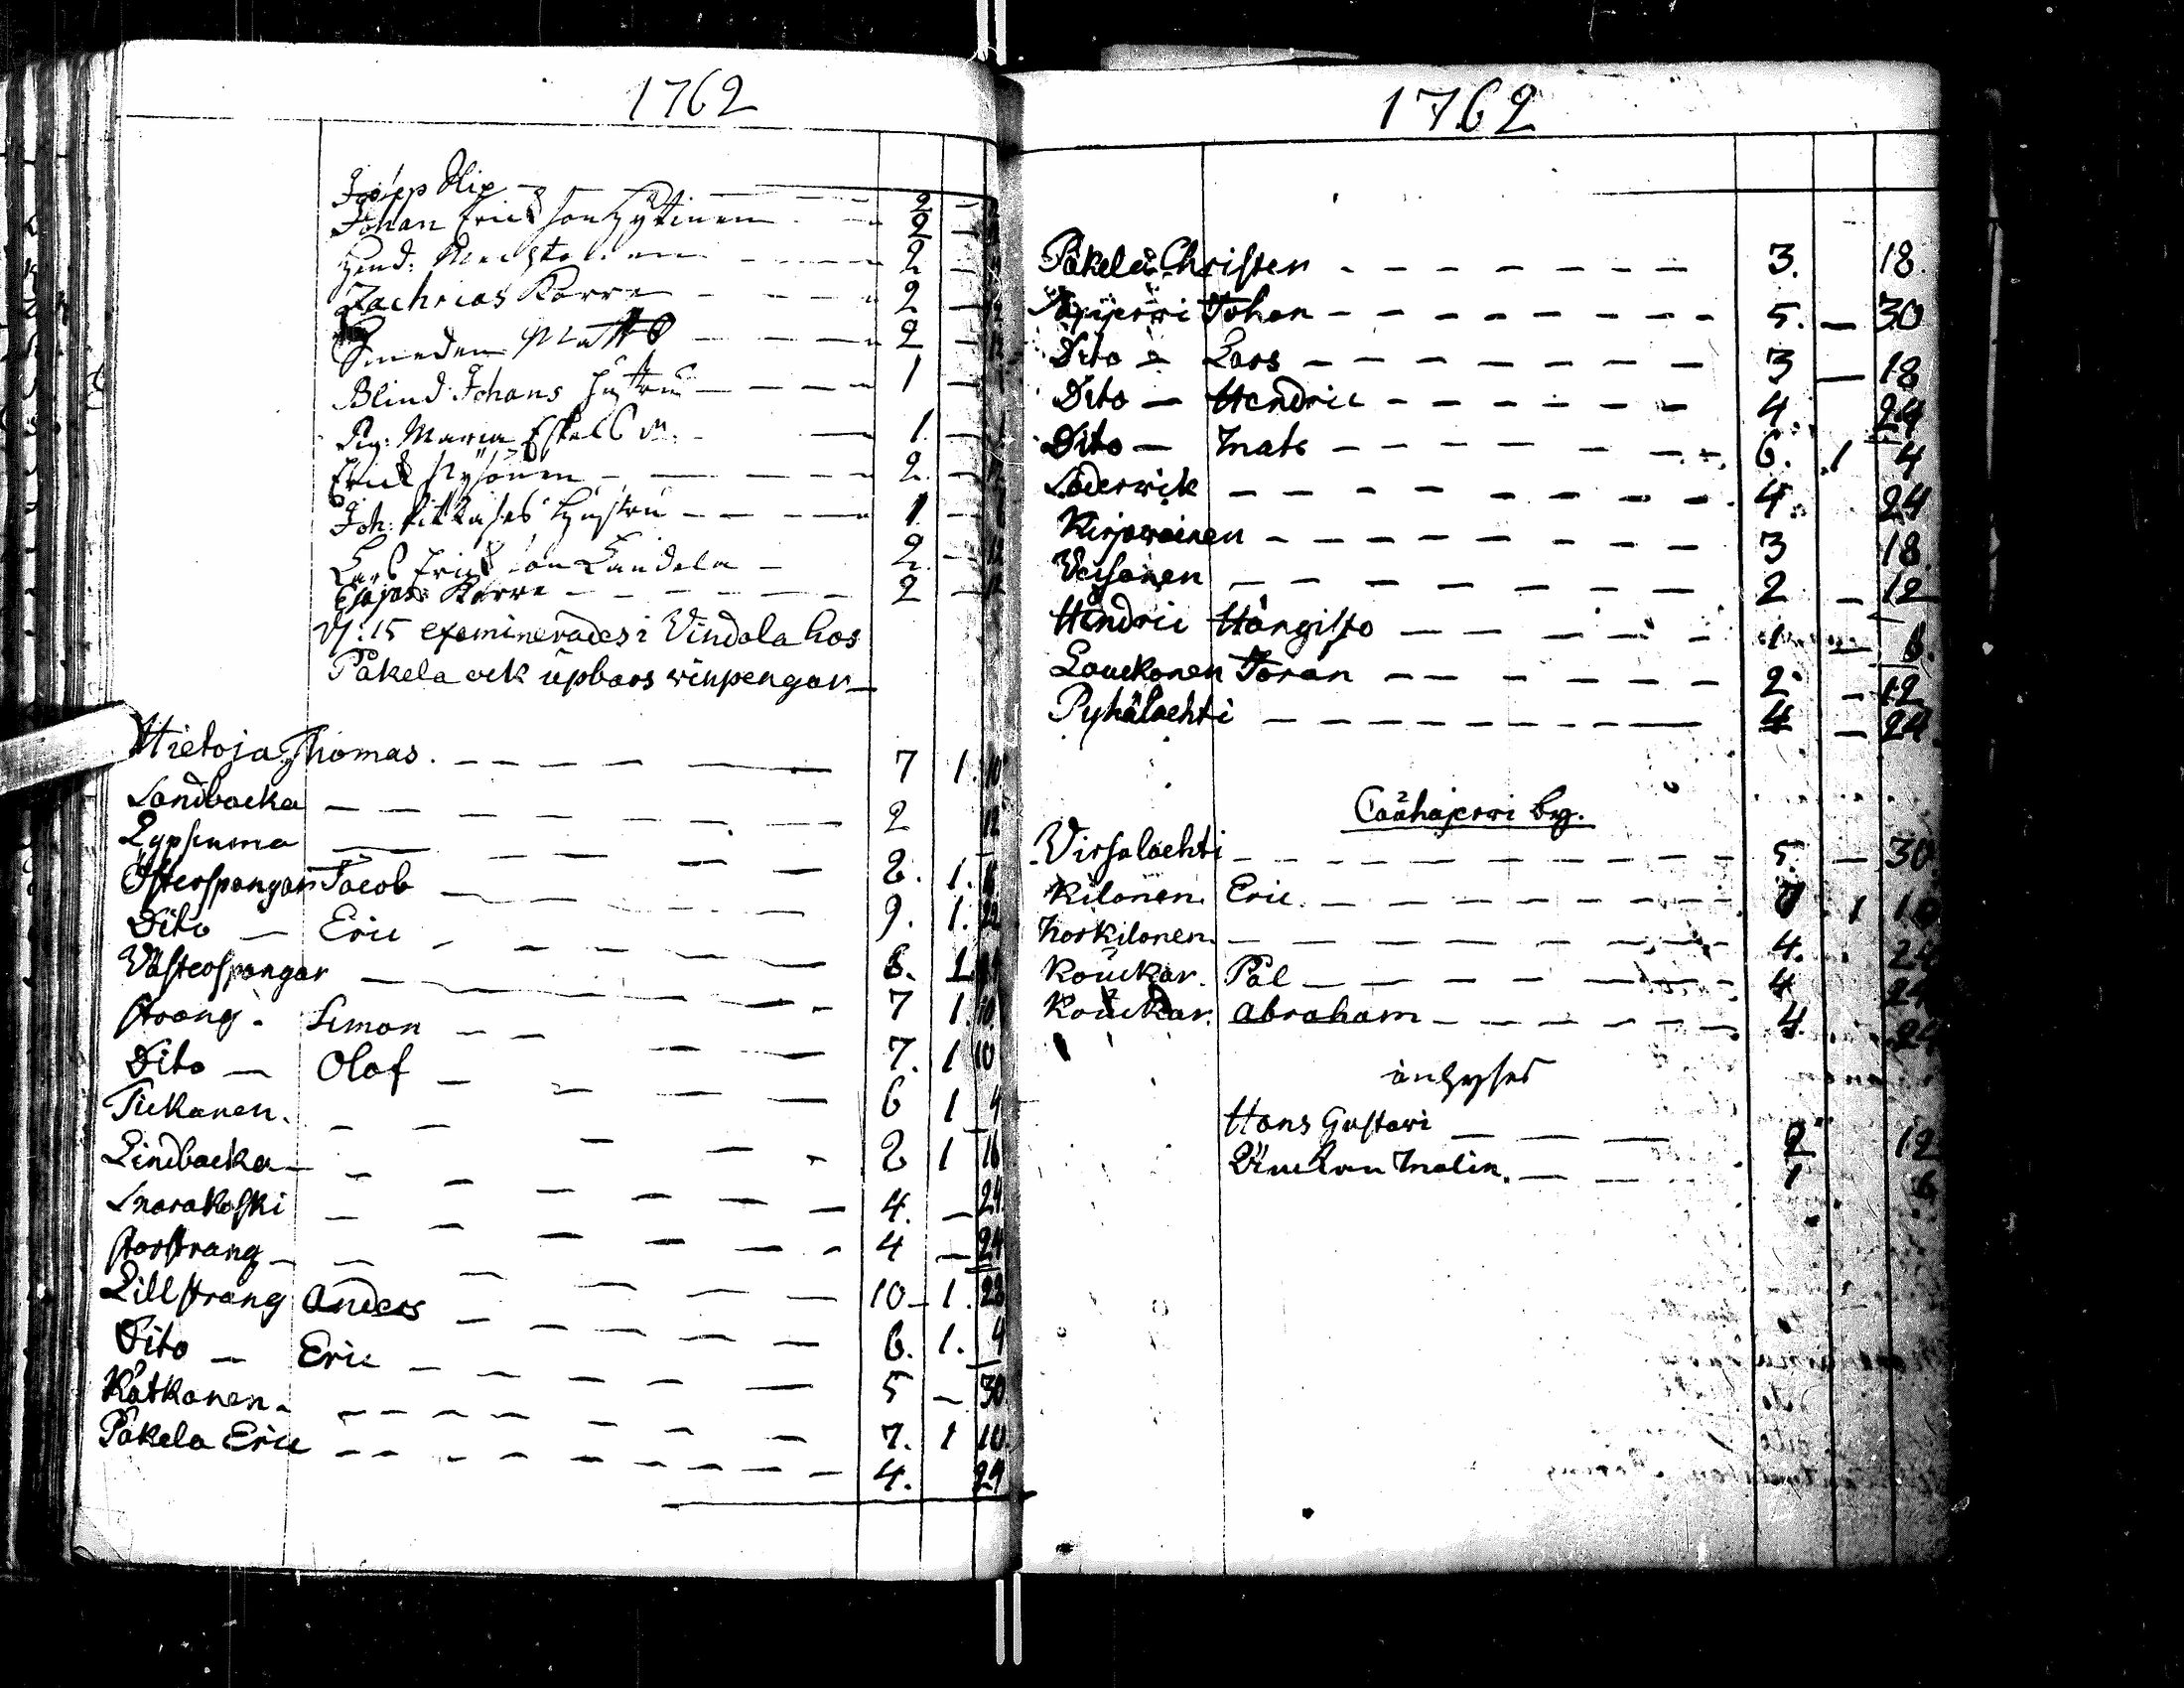 1762
Josepp Slip - 2 -
Johan Erickson Hytinen - 2 - 12
Hend: - 2 -
Zachrias Karre - 2 - 12
Smeden Matts - 2 - 12
Blind Johans Hustru - 1 -
Pig: Maria - 1 -
Erick - 2. - 12
Joh: Hustru - 1 -
Lars Erickson - 2 - 12
Esajas Karre - 2 - 12
15 examinerades i Vindala hos
Påkela ock upbars vinpengar
Hietoja Thomas. - 7 1. 10
Sandbacka - 2 12
Lypsinma - 8. 1. 16
Österspongar Jacob - 9. 1. 22
Dito - Eric - 8. 1
Västerspongar - 7 1. 10
Strang. Simon - 7. 1 10
Dito - Olof - 6 1 4
Tickanen. - 8 1 16
Lindbacka - 4. - 24
Snarakoski - 4 - 24
Storstrang - 10 - 1. 28
Lillstrang Anders - 6. 1. 4
Dito - Eric - 5 - 30
Kåtkanen - 7. 1 10
Påkela Eric - 4. 24
1762
Påkela Christen - 3. 18.
Johan - 5. - 30
Dito - Lars - 3 - 18
Dito - Hendric - 4. 24
Dito - Mats - 6. 1 4
Loderwik - 4. 24
Kirjawainen - 3 18.
Weisanen - 2 - 12
Hendric Hangisto - 1 - 6.
Lauckonen Joran - 2. - 12
Pyhälachti - 4 - 24
Caahajerwi by.
Virsalachti - 5. - 30
Kilonen. Eric. - 7 1 10
Norkilonen. - 4. 24
Kouckar. Pål - 4 24
Kouckar. Abraham - 4. 24
inhyses
Hans Gustavi - 2 12
Änckan Malin. - 1 6